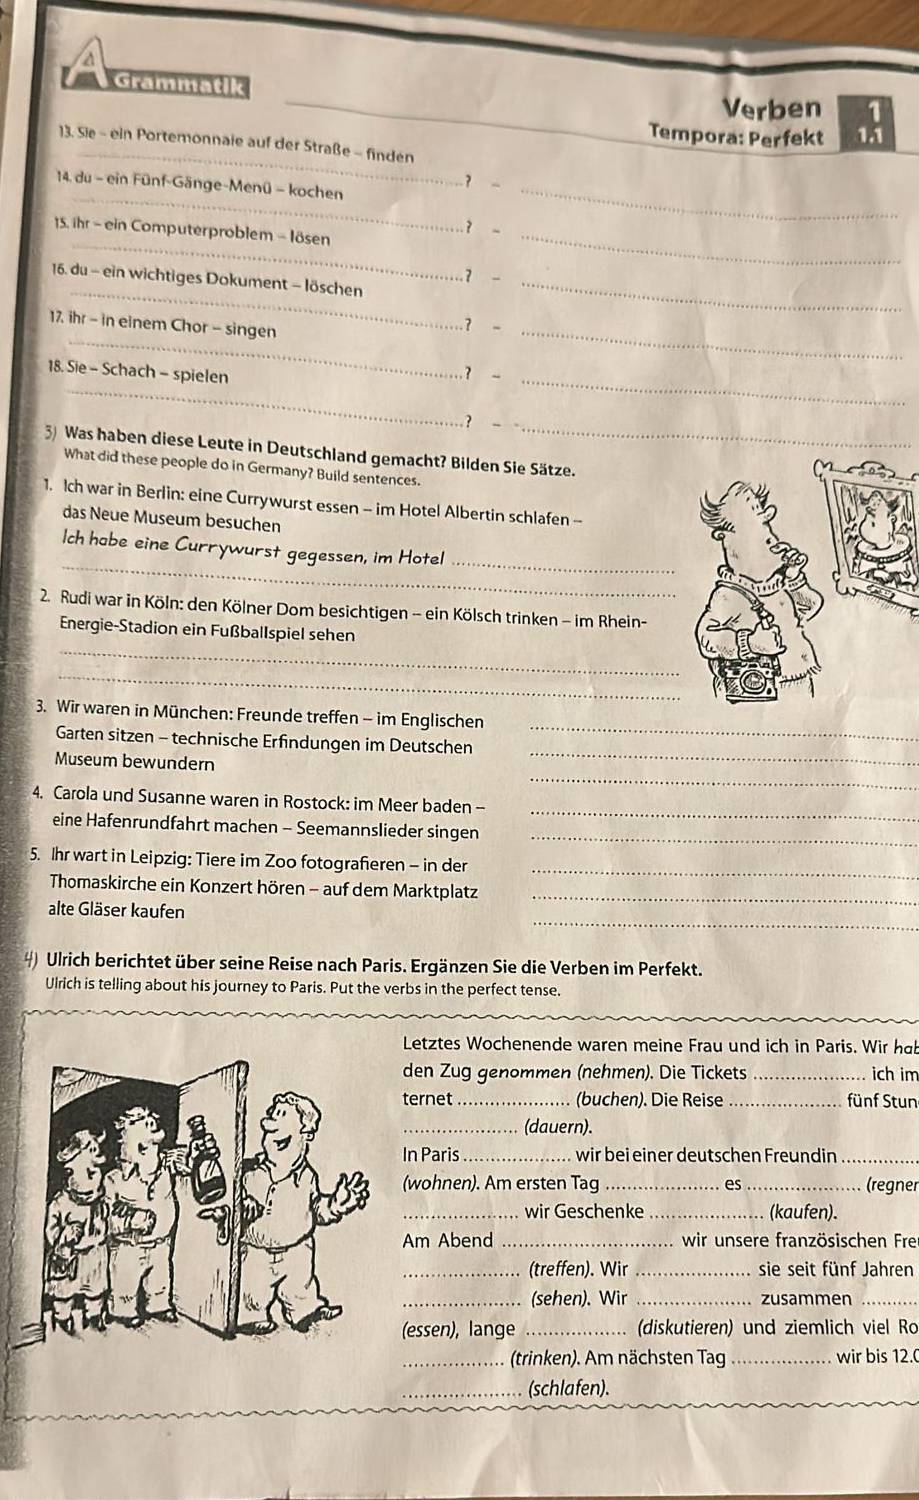 A Grammatik
Verben 1
Tempora: Perfekt 1.1
13. Sie – ein Portemonnaie auf der Straße – finden
? –
14. du – ein Fünf-Gänge-Menü – kochen
? –
15. ihr – ein Computerproblem – lösen
? –
16. du – ein wichtiges Dokument – löschen
? –
17. ihr – in einem Chor – singen
? –
18. Sie – Schach – spielen
? –
3) Was haben diese Leute in Deutschland gemacht? Bilden Sie Sätze.
What did these people do in Germany? Build sentences.
1. Ich war in Berlin: eine Currywurst essen – im Hotel Albertin schlafen –
das Neue Museum besuchen
Ich habe eine Currywurst gegessen, im Hotel ....................
2. Rudi war in Köln: den Kölner Dom besichtigen – ein Kölsch trinken – im Rhein-
Energie-Stadion ein Fußballspiel sehen
3. Wir waren in München: Freunde treffen – im Englischen
Garten sitzen – technische Erfindungen im Deutschen
Museum bewundern
4. Carola und Susanne waren in Rostock: im Meer baden –
eine Hafenrundfahrt machen – Seemannslieder singen
5. Ihr wart in Leipzig: Tiere im Zoo fotografieren – in der
Thomaskirche ein Konzert hören – auf dem Marktplatz
alte Gläser kaufen
4) Ulrich berichtet über seine Reise nach Paris. Ergänzen Sie die Verben im Perfekt.
Ulrich is telling about his journey to Paris. Put the verbs in the perfect tense.
Letztes Wochenende waren meine Frau und ich in Paris. Wir hab
den Zug genommen (nehmen). Die Tickets .................... ich im
ternet .................... (buchen). Die Reise .................... fünf Stun
.................... (dauern).
In Paris .................... wir bei einer deutschen Freundin ..............
(wohnen). Am ersten Tag .................... es .................... (regner
.................... wir Geschenke .................... (kaufen).
Am Abend .............................. wir unsere französischen Fre
.................... (treffen). Wir .................... sie seit fünf Jahren
.................... (sehen). Wir .................... zusammen ..........
(essen), lange .................. (diskutieren) und ziemlich viel Ro
.................. (trinken). Am nächsten Tag .................. wir bis 12.0
.................... (schlafen).